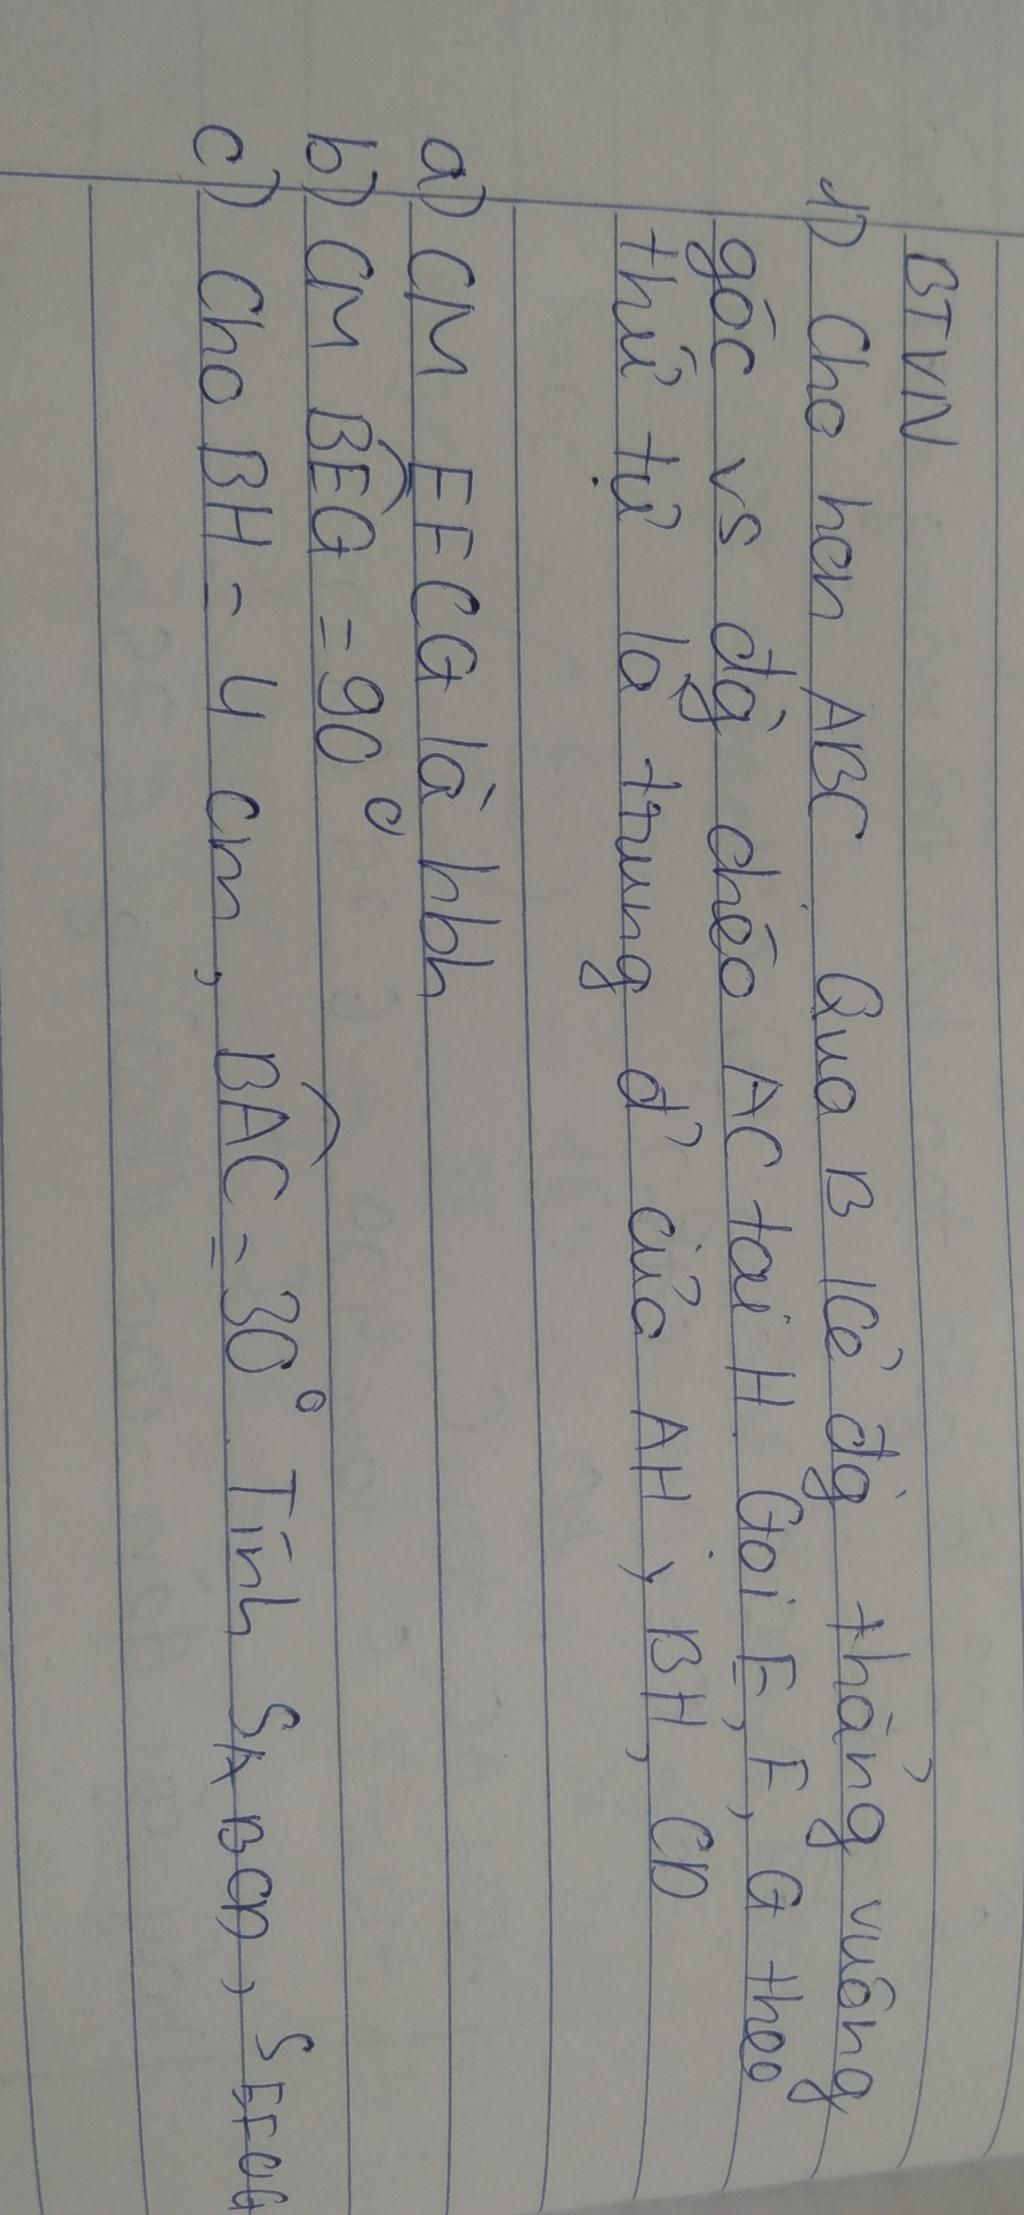 BTVN
1) Cho hcn ABC. Qua B kẻ đg̀ thẳng vuông
góc vs đg̀ chéo AC tại H. Gọi E, F, G theo
thứ tự là trung đ' của AH, BH, CD
a) CM EFCG là hbh
b) CM BÊG = 90°
c) Cho BH = 4 cm, BÂC = 30°. Tính SABCD, SEFCG